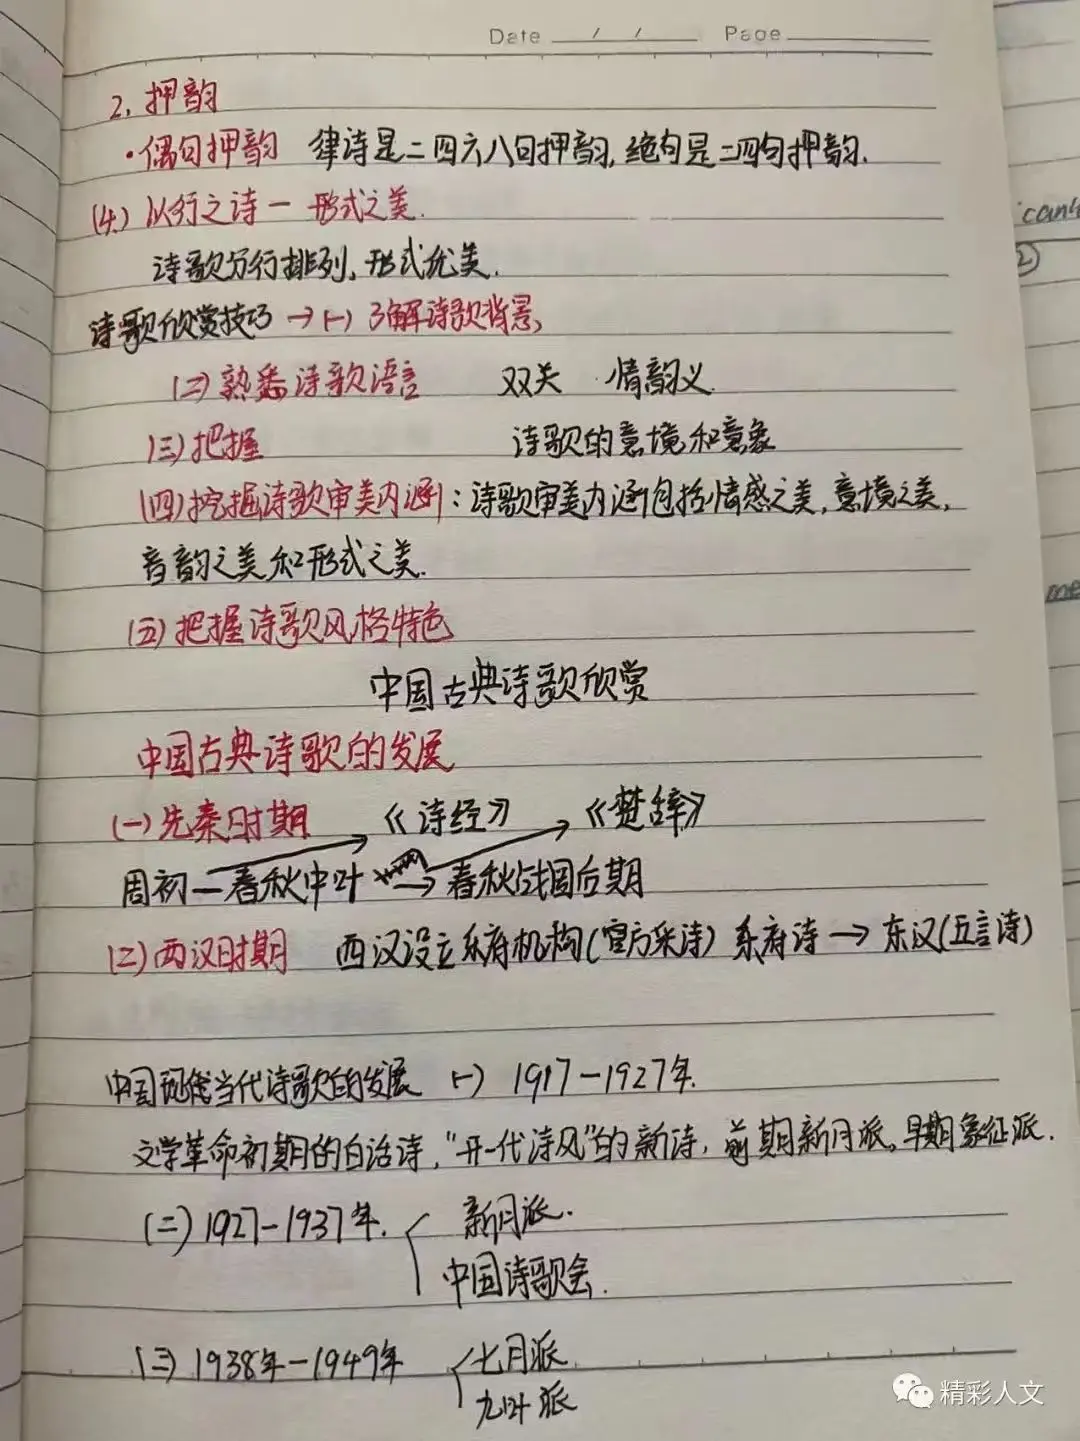 Date / / Page
2. 押韵
·偶句押韵 律诗是二四六八句押韵,绝句是二四句押韵.
(4.) 以行之诗一 形式之美.
诗歌分行排列,形式优美.
诗歌欣赏技巧→(一) 了解诗歌背景,
(二) 熟悉诗歌语言 双关 情韵义.
(三) 把握 诗歌的意境和意象
(四) 挖掘诗歌审美内涵:诗歌审美内涵包括情感之美,意境之美,
音韵之美和形式之美.
(五) 把握诗歌风格特色
中国古典诗歌欣赏
中国古典诗歌的发展
(一) 先秦时期 《诗经》 《楚辞》
周初—春秋中叶 → 春秋战国后期
(二) 两汉时期 西汉设立乐府机构(官方采诗) 乐府诗→东汉(五言诗)
中国现代当代诗歌的发展 (一) 1917-1927年.
文学革命初期的白话诗,"开一代诗风"的新诗,前期新月派。早期象征派.
(二) 1927-1937年. 新月派.
中国诗歌会.
(三) 1938年-1949年 七月派
九叶派
can
2)
me
精彩人文